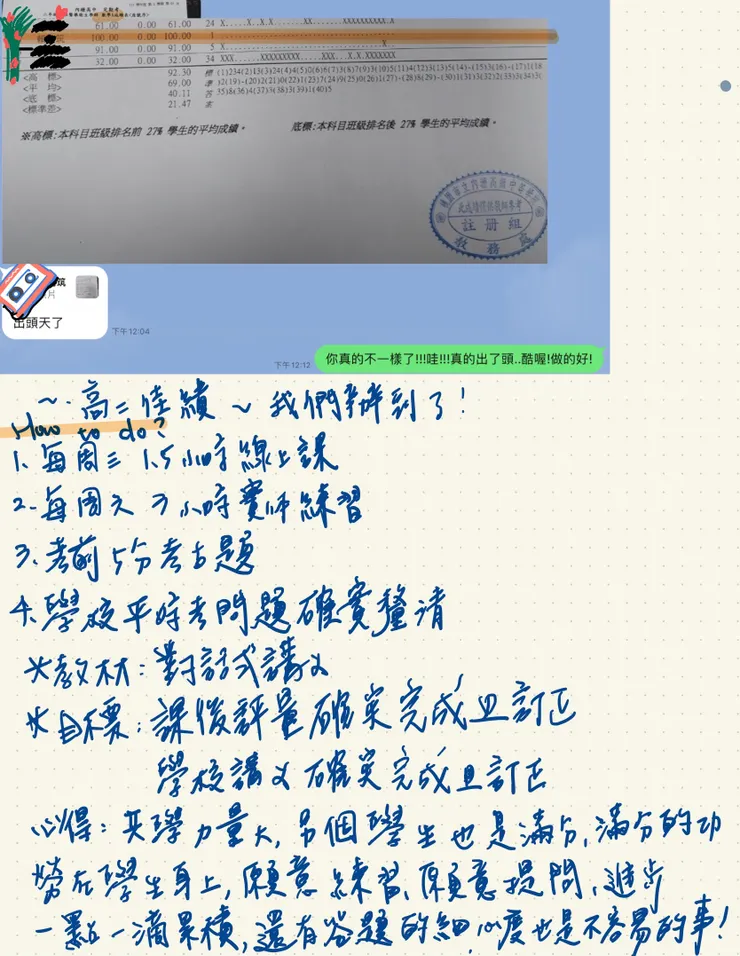 61.00 0.00 61.00 24
100.00 0.00 100.00 1
91.00 0.00 91.00 5
32.00 0.00 32.00 34
<高 標> 92.30
<平 均> 69.00
<底 標> 40.11
<標準差> 21.47
※高標:本科目班級排名前 27% 學生的平均成績。 底標:本科目班級排名後 27% 學生的平均成績。
註冊組
教務處
出頭天了
下午12:04
下午12:12 你真的不一樣了!!!哇!!!真的出了頭..酷喔!做的好!
~.高三佳績~我們辦到了!
How to do?
1.每周三 1.5小時線上課
2.每周六 3小時實體練習
3.考前5分考古題
4.學校平時考問題確實釐清
*教材:對話式講義
*目標:課後評量確實完成且訂正
學校講義確實完成且訂正
心得:共學力量大,另個學生也是滿分,滿分的功
勞在學生身上,願意練習,願意提問,進步
一點一滴累積,還有答題的細心度也是不容易的事!